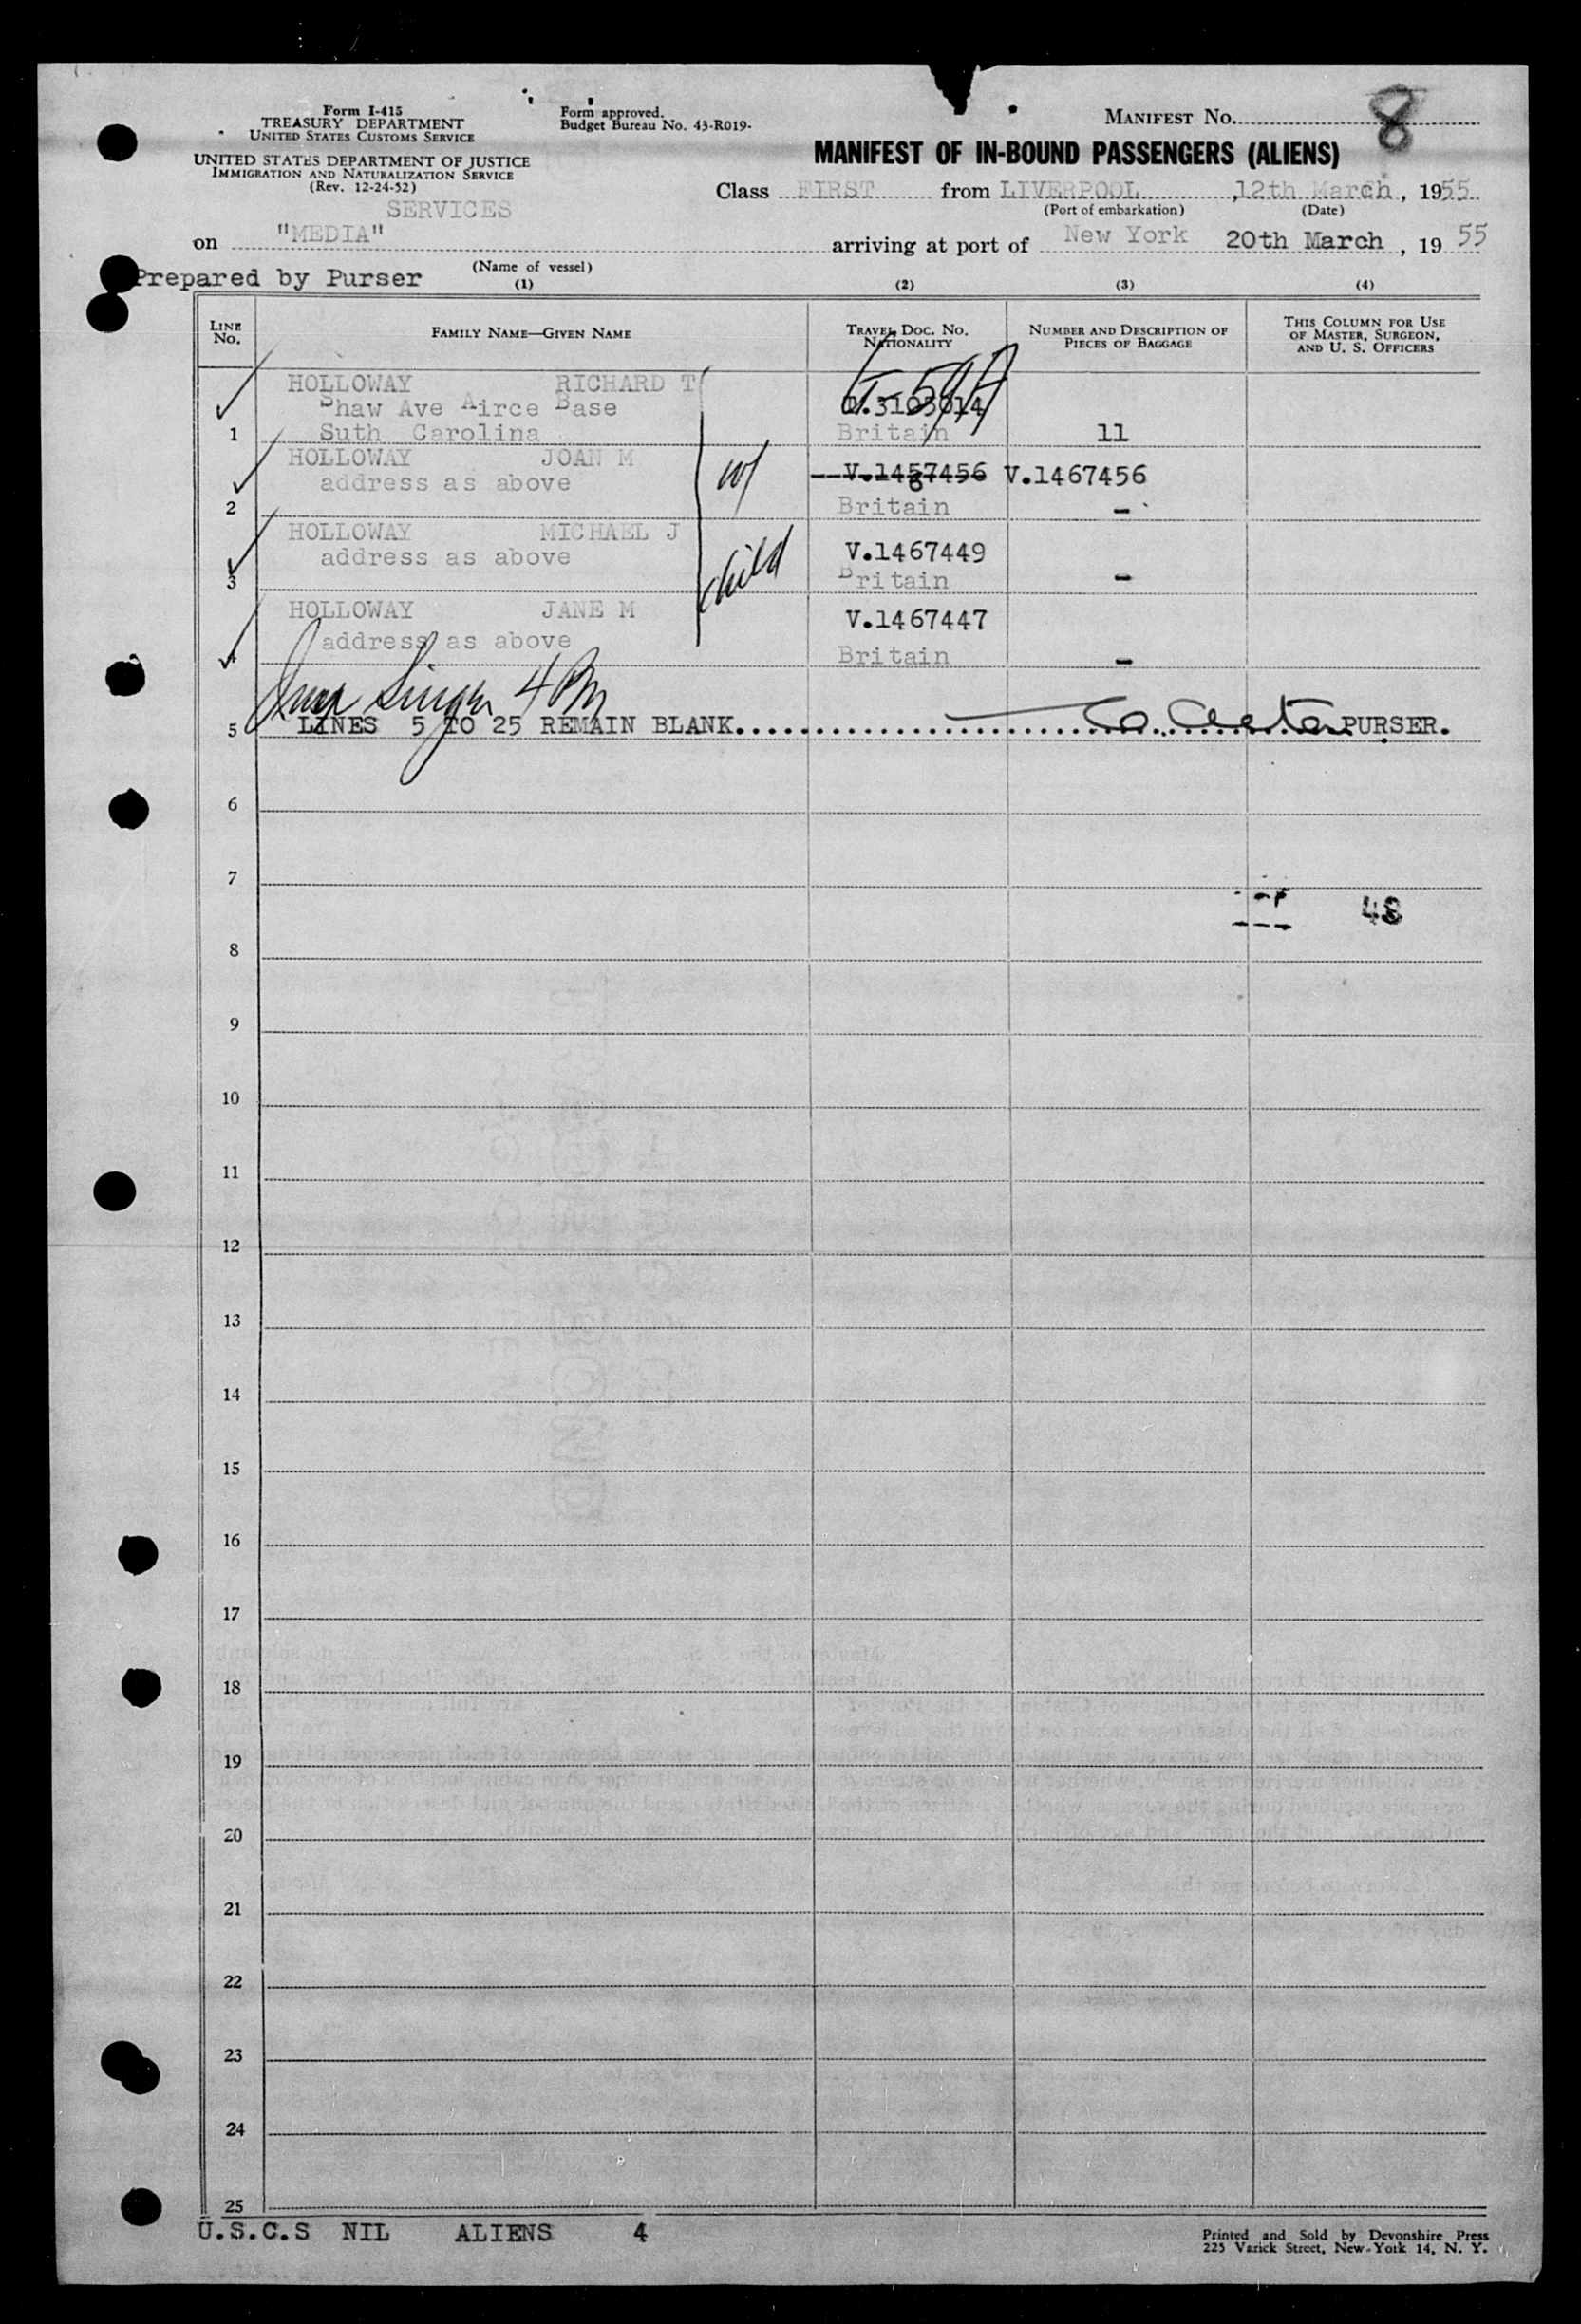 Form I-415
TREASURY DEPARTMENT
UNITED STATES CUSTOMS SERVICE
UNITED STATES DEPARTMENT OF JUSTICE
IMMIGRATION AND NATURALIZATION SERVICE
(Rev. 12-24-52)
Form approved.
Budget Bureau No. 43-R019-
MANIFEST NO. 8
MANIFEST OF IN-BOUND PASSENGERS (ALIENS)
Class FIRST from LIVERPOOL, 12th March, 1955
(Port of embarkation) (Date)
SERVICES
on "MEDIA" arriving at port of New York 20th March, 19 55
(Name of vessel)
Prepared by Purser
(1) (2) (3) (4)
LINE No. FAMILY NAME—GIVEN NAME TRAVEL DOC. NO. NATIONALITY NUMBER AND DESCRIPTION OF PIECES OF BAGGAGE THIS COLUMN FOR USE OF MASTER, SURGEON, AND U. S. OFFICERS
HOLLOWAY RICHARD T
Shaw Ave Airce Base
1 Suth Carolina Britain 11
HOLLOWAY JOAN M w/ V.1457456 V.1467456
address as above
2 Britain -
HOLLOWAY MICHAEL J
address as above child V.1467449
3 Britain -
HOLLOWAY JANE M V.1467447
address as above
4 Britain -
4 PM
5 LINES 5 TO 25 REMAIN BLANK. PURSER.
6
7
48
8
9
10
11
12
13
14
15
16
17
18
19
20
21
22
23
24
25
U.S.C.S NIL ALIENS 4
Printed and Sold by Devonshire Press
225 Varick Street, New York 14, N. Y.